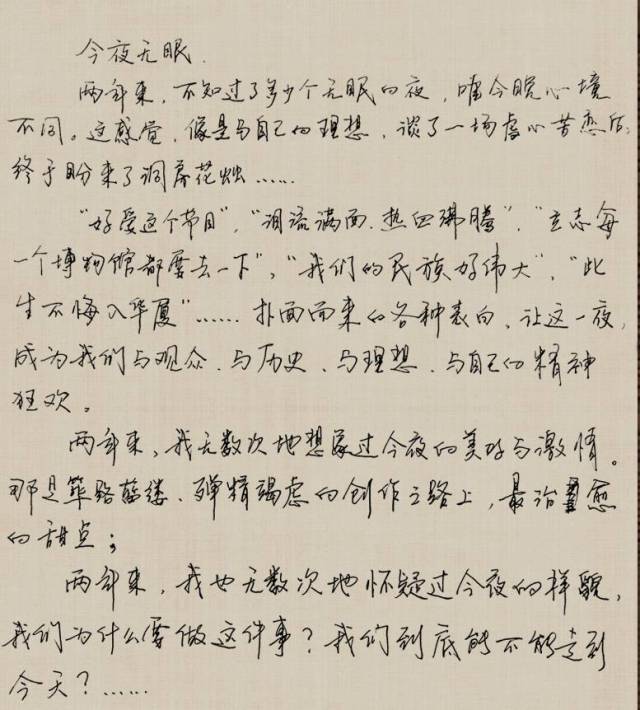 今夜无眠.
两年来,不知过了多少个无眠的夜,唯今晚心境
不同。这感觉,像是与自己的理想,谈了一场虐心苦恋后,
终于盼来了洞房花烛……
“好爱这个节目”,“泪流满面、热血沸腾”,“立志每
一个博物馆都要去一下”,“我们的民族好伟大”,“此
生不悔入华夏”……扑面而来的各种表白、让这一夜,
成为我们与观众、与历史、与理想、与自己的精神
狂欢。
两年来,我无数次地想象过今夜的美好与激情。
那是筚路蓝缕、殚精竭虑的创作之路上,最治愈
的甜点;
两年来,我也无数次地怀疑过今夜的样貌,
我们为什么要做这件事?我们到底能不能走到
今天?……